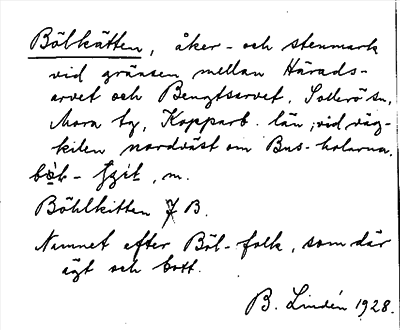 Bölkätten, åker- och stenmark
vid gränsen mellan Härads-
arvet och Bengtsarvet, Sollerö sn,
Mora tg, Kopparb. län, vid väg-
kilen nordväst om Bus-holarna.
Böhlkitten 7 B.
Namnet efter Böl-folk, som där
ägt och bott.
B. Lindén 1928.